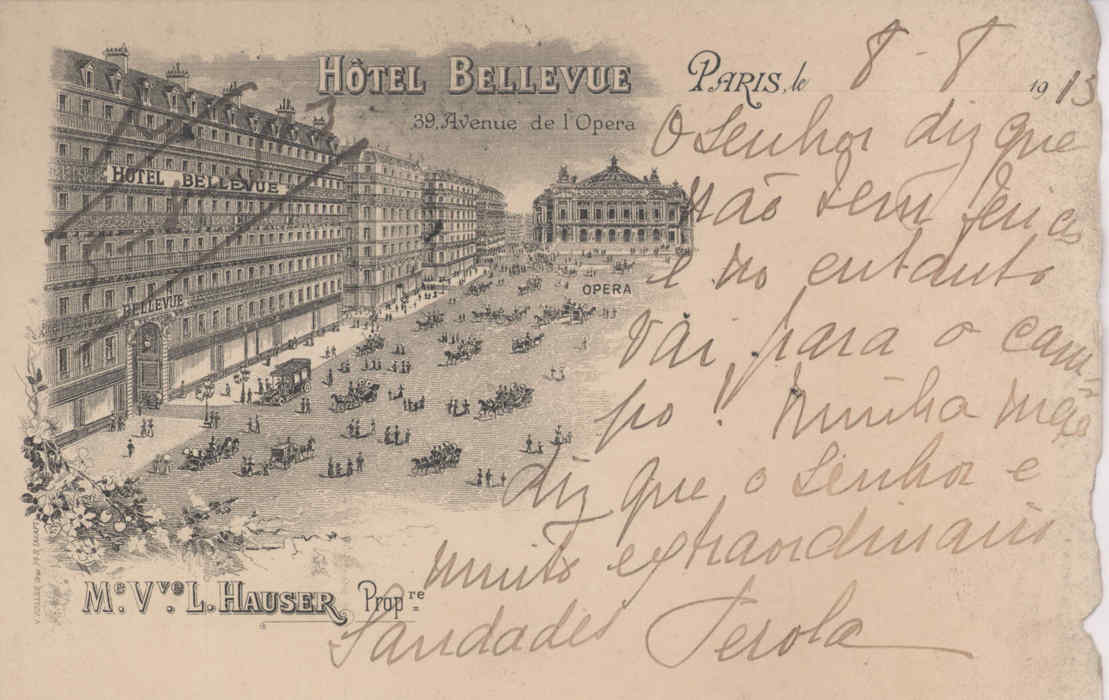 HÔTEL BELLEVUE
39, Avenue de l'Opera
PARIS, le 8 - 8 1913
HÔTEL BELLEVUE
BELLEVUE
OPERA
O Senhor diz que
não tem ferias
e no entanto
vai para o cam-
po! Minha mãe
diz que o Senhor e
muito extraordinario
Saudades Perola
Me. Vve. L. HAUSER, Propre